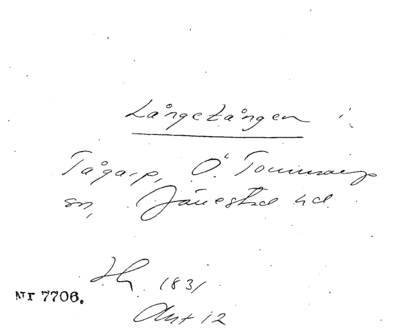 Långetången i
Tågarp, Ö. Tommarp
sn, Järrestad hd
Hy. 1831
Akt 12
Nr 7706.